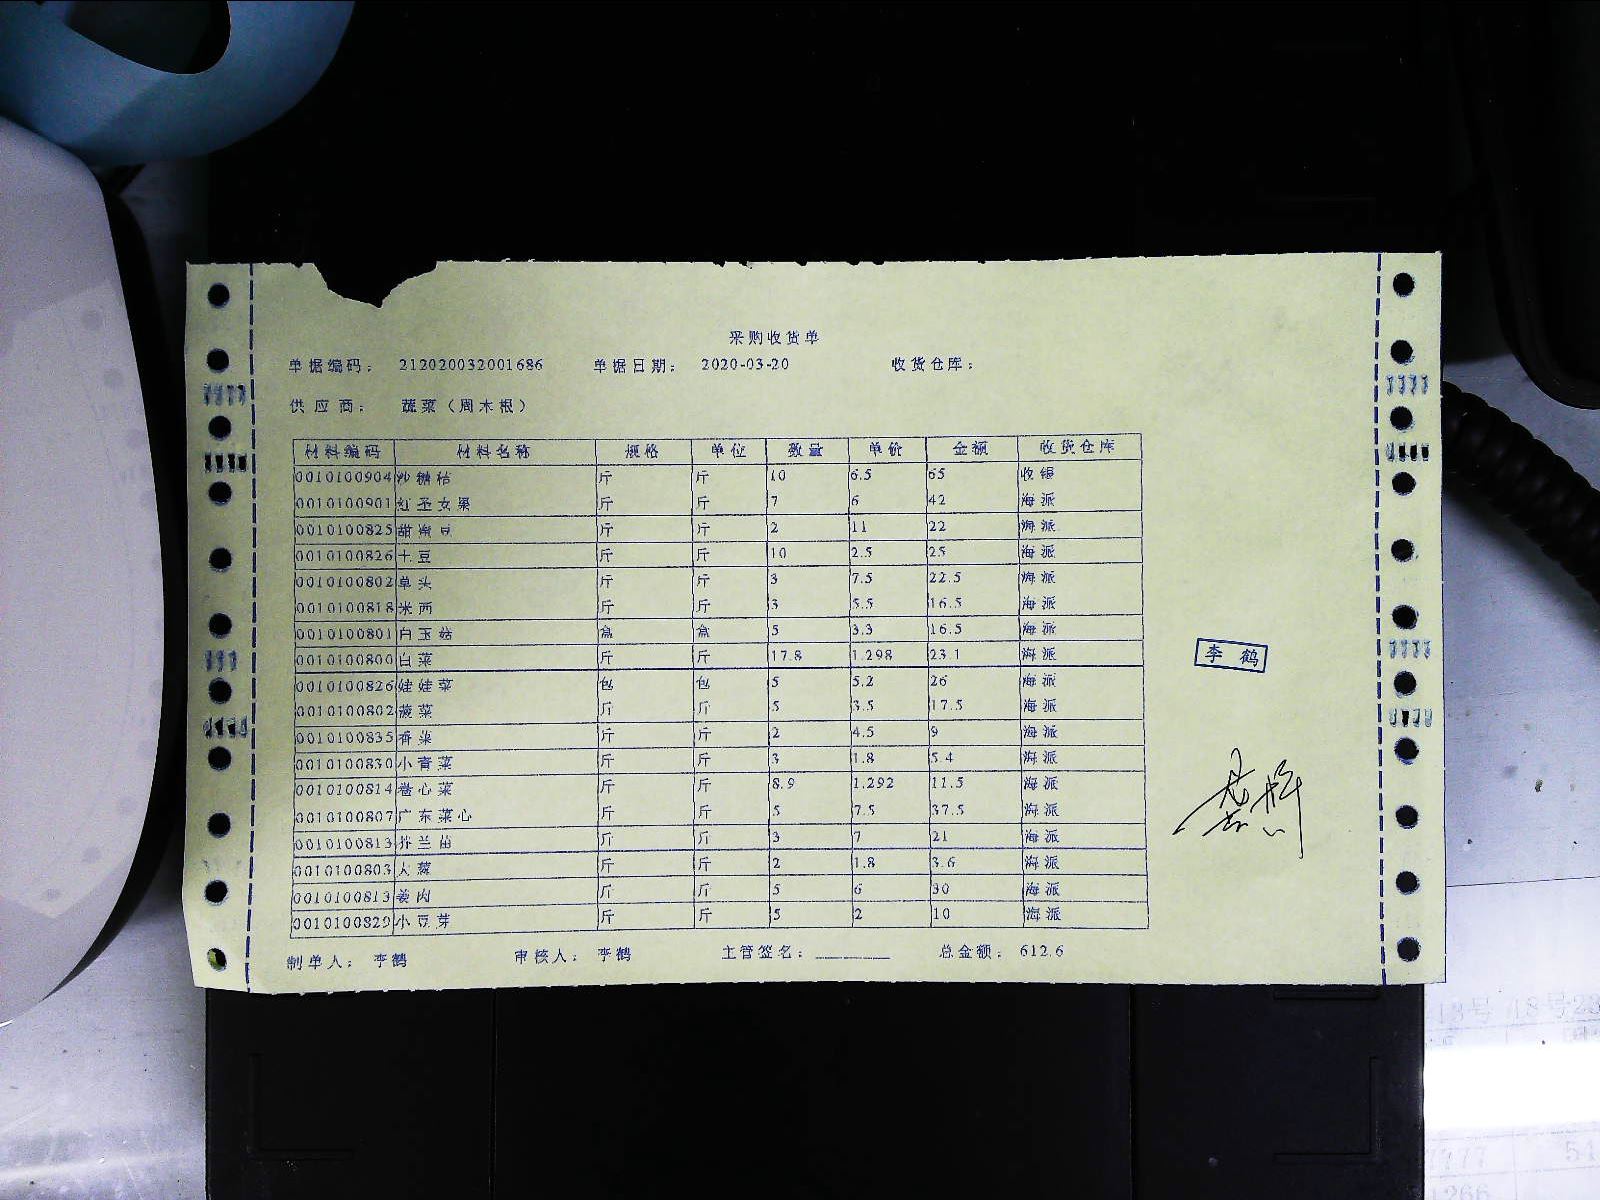 采购收货单
单据编码： 212020032001686 单据日期： 2020-03-20 收货仓库：
供应商： 蔬菜（周木根）
材料编码 材料名称 规格 单位 数量 单价 金额 收货仓库
0010100904 沙糖桔 斤 斤 10 6.5 65 收银
0010100901 红圣女果 斤 斤 7 6 42 海派
0010100825 甜蜜豆 斤 斤 2 11 22 海派
0010100826 土豆 斤 斤 10 2.5 25 海派
0010100802 草头 斤 斤 3 7.5 22.5 海派
0010100818 米西 斤 斤 3 5.5 16.5 海派
0010100801 白玉菇 盒 盒 5 3.3 16.5 海派
0010100800 白菜 斤 斤 17.8 1.298 23.1 海派
0010100826 娃娃菜 包 包 5 5.2 26 海派
0010100802 菠菜 斤 斤 5 3.5 17.5 海派
0010100835 香菜 斤 斤 2 4.5 9 海派
0010100830 小青菜 斤 斤 3 1.8 5.4 海派
0010100814 卷心菜 斤 斤 8.9 1.292 11.5 海派
0010100807 广东菜心 斤 斤 5 7.5 37.5 海派
0010100813 芥兰苗 斤 斤 3 7 21 海派
0010100803 大 斤 斤 2 1.8 3.6 海派
0010100813 姜肉 斤 斤 5 6 30 海派
0010100829 小豆芽 斤 斤 5 2 10 海派
制单人： 李鹤 审核人： 李鹤 主管签名：________ 总金额： 612.6
李鹤